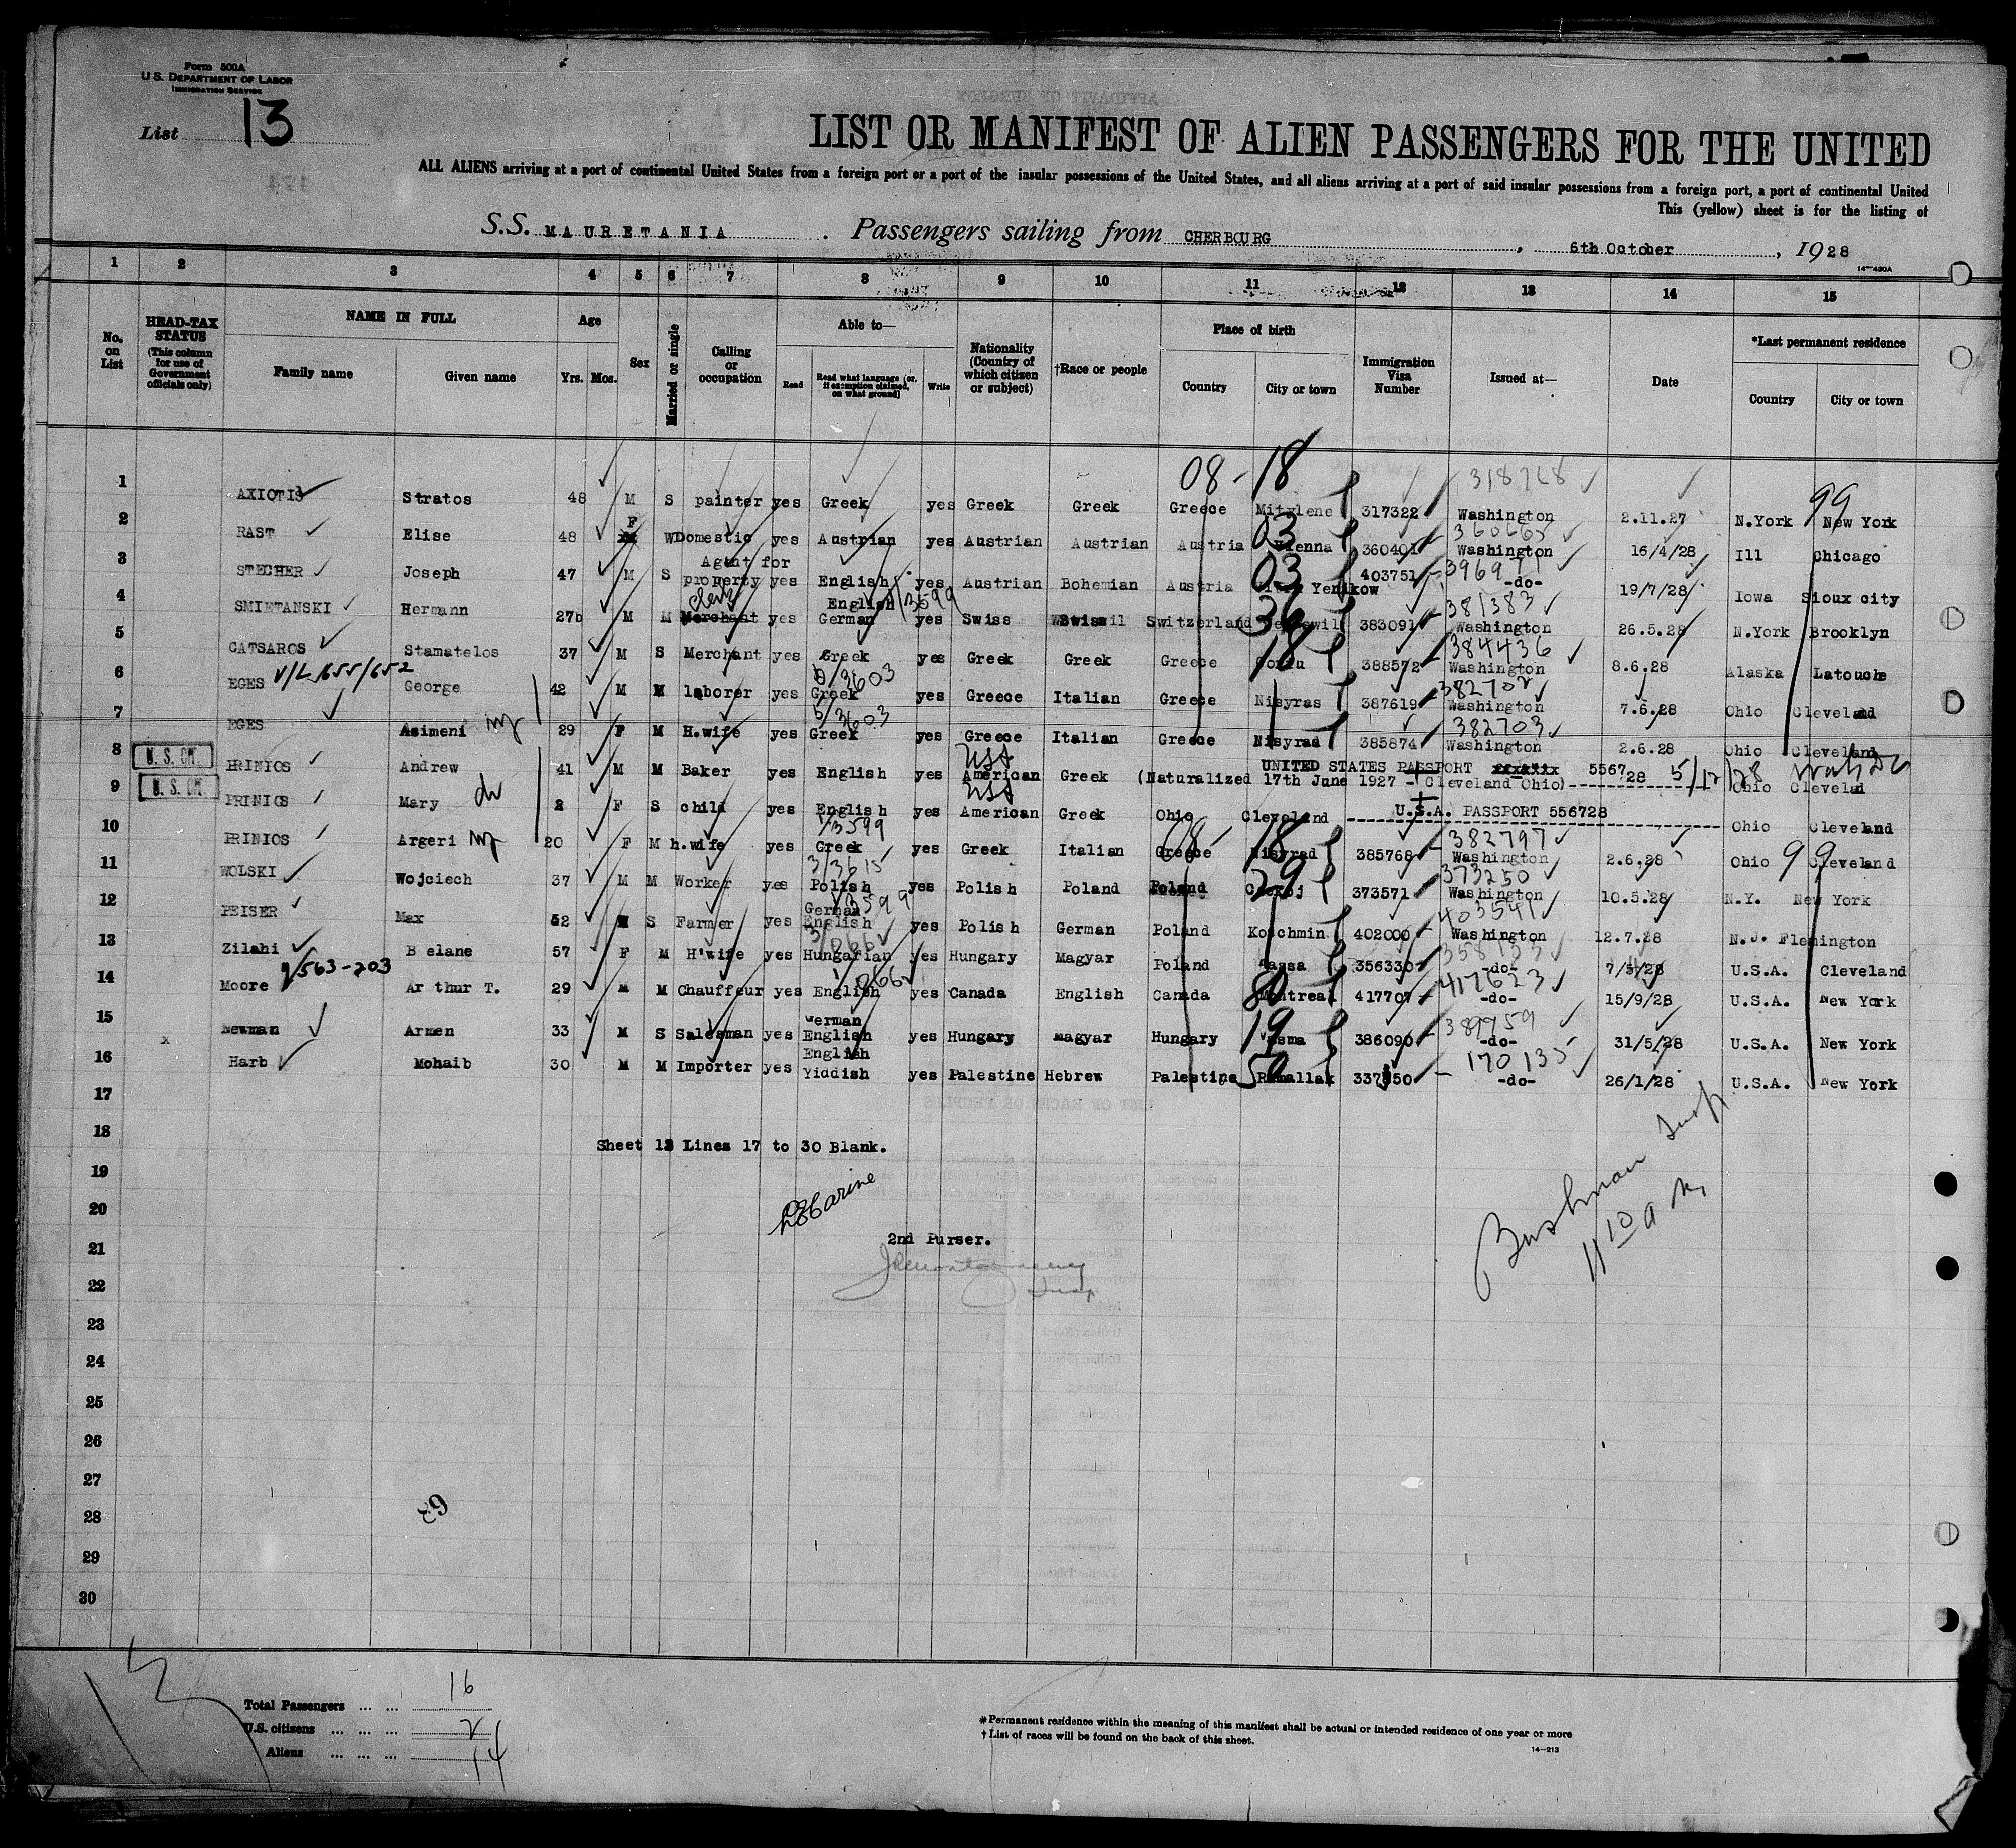 Form 500A
U.S. DEPARTMENT OF LABOR
IMMIGRATION SERVICE
List 13
LIST OR MANIFEST OF ALIEN PASSENGERS FOR THE UNITED
ALL ALIENS arriving at a port of continental United States from a foreign port or a port of the insular possessions of the United States, and all aliens arriving at a port of said insular possessions from a foreign port, a port of continental United
This (yellow) sheet is for the listing of
S.S. MAURETANIA. Passengers sailing from CHERBOURG, 6th October, 1928
14-430A
1 2 3 4 5 6 7 8 9 10 11 12 13 14 15
No. on List
HEAD-TAX STATUS (This column for use of Government officials only)
NAME IN FULL
Family name Given name
Age
Yrs. Mos.
Sex
Married or single
Calling or occupation
Able to—
Read Read what language (or, if exemption claimed, on what ground) Write
Nationality (Country of which citizen or subject)
†Race or people
Place of birth
Country City or town
Immigration Visa Number
Issued at—
Date
*Last permanent residence
Country City or town
08-18 318768 99
1 AXIOTIS Stratos 48 M S painter yes Greek yes Greek Greek Greece Mitylene 317322 Washington 2.11.27 N.York New York
F 03 360665
2 RAST Elise 48 W Domestic yes Austrian yes Austrian Austrian Austria Vienna 360401 Washington 16/4/28 Ill Chicago
Agent for 03 396971
3 STECHER Joseph 47 M S property yes English yes Austrian Bohemian Austria Yenikow 403751 -do- 19/7/28 Iowa Sioux city
Clerk English 1/3599 36 381383
4 SMIETANSKI Hermann 27b M M Merchant yes German yes Swiss Swiss Switzerland 383091 Washington 26.5.28 N.York Brooklyn
18 384436
5 CATSAROS Stamatelos 37 M S Merchant yes Greek yes Greek Greek Greece Corfu 388572 Washington 8.6.28 Alaska Latouche
V/L 655/652 b/3603 382702
6 EGES George 42 M M laborer yes Greek yes Greece Italian Greece Nisyras 387619 Washington 7.6.28 Ohio Cleveland
b/3603 382703
7 EGES Asimeni 29 F M H.wife yes Greek yes Greece Italian Greece Nisyrad 385874 Washington 2.6.28 Ohio Cleveland
U.S. CIT. USA UNITED STATES PASSPORT 5567 28 5/12/28 Wash DC
8 PRINIOS Andrew 41 M M Baker yes English yes American Greek (Naturalized 17th June 1927 - (Cleveland Ohio) Ohio Cleveland
U.S. CIT. USA
9 PRINIOS Mary 2 F S child yes English yes American Greek Ohio Cleveland U.S.A. PASSPORT 556728 Ohio Cleveland
1/3599 08 18 382797 99
10 PRINIOS Argeri 20 F M h.wife yes Greek yes Greek Italian Greece Nisyrad 385768 Washington 2.6.28 Ohio Cleveland
3/3615 29 373250
11 WOLSKI Wojciech 37 M M Worker yes Polish yes Polish Poland Poland 373571 Washington 10.5.28 N.Y. New York
German 1/3599 403541
12 PEISER Max 52 M S Farmer yes English yes Polish German Poland Koschmin 402000 Washington 12.7.28 N.J. Flemington
13 Zilahi Belane 57 F M H'wife yes Hungarian yes Hungary Magyar Poland Kassa 356330 -do- 7/5/28 U.S.A. Cleveland
563-203 80 417623
14 Moore Arthur T. 29 M M Chauffeur yes English yes Canada English Canada Montreal 417707 -do- 15/9/28 U.S.A. New York
German 19 389759
15 Newman Armen 33 M S Salesman yes English yes Hungary Magyar Hungary 386090 -do- 31/5/28 U.S.A. New York
English 50 170135
16 Harb Mohaib 30 M M Importer yes Yiddish yes Palestine Hebrew Palestine Ramallak -do- 26/1/28 U.S.A. New York
17
18 Sheet 13 Lines 17 to 30 Blank.
19
20
21 2nd Purser.
Bushman Insp
11 10 a m
22
23
24
25
26
27
28 63
29
30
Total Passengers ... ... 16
U.S. citizens ... ... ... 2
Aliens ... ... ... 14
*Permanent residence within the meaning of this manifest shall be actual or intended residence of one year or more
†List of races will be found on the back of this sheet.
14-213